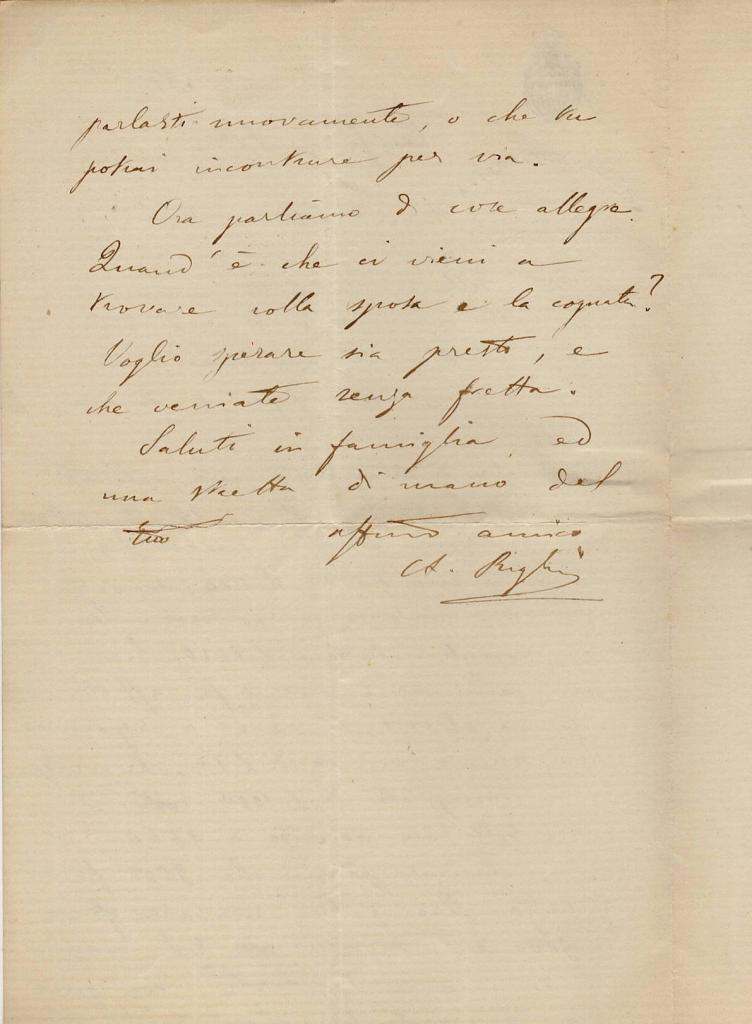 parlasti nuovamente, o che tu
potrai incontrare per via.
Ora parliamo di cose allegre.
Quand'è che ci vieni a
trovare colla sposa e la cognata?
Voglio sperare sia presto, e
che veniate senza fretta.
Saluti in famiglia, ed
una stretta di mano del
tuo affmo amico
A. Righi